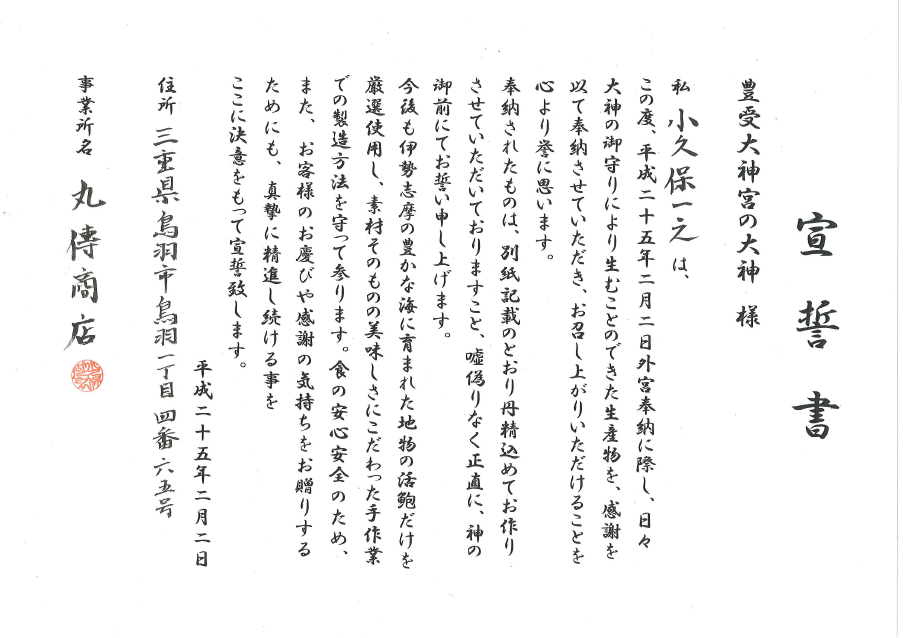 宣誓書
豊受大神宮の大神 様
私 小久保一之 は、
この度、平成二十五年二月二日外宮奉納に際し、日々
大神の御守りにより生むことのできた生産物を、感謝を
以て奉納させていただき、お召し上がりいただけることを
心より誉に思います。
奉納されたものは、別紙記載のとおり丹精込めてお作り
させていただいておりますこと、嘘偽りなく正直に、神の
御前にてお誓い申し上げます。
今後も伊勢志摩の豊かな海に育まれた地物の活鮑だけを
厳選使用し、素材そのものの美味しさにこだわった手作業
での製造方法を守って参ります。食の安心安全のため、
また、お客様のお慶びや感謝の気持ちをお贈りする
ためにも、真摯に精進し続ける事を
ここに決意をもって宣誓致します。
平成二十五年二月二日
住所 三重県鳥羽市鳥羽一丁目四番六五号
事業所名 丸傳商店